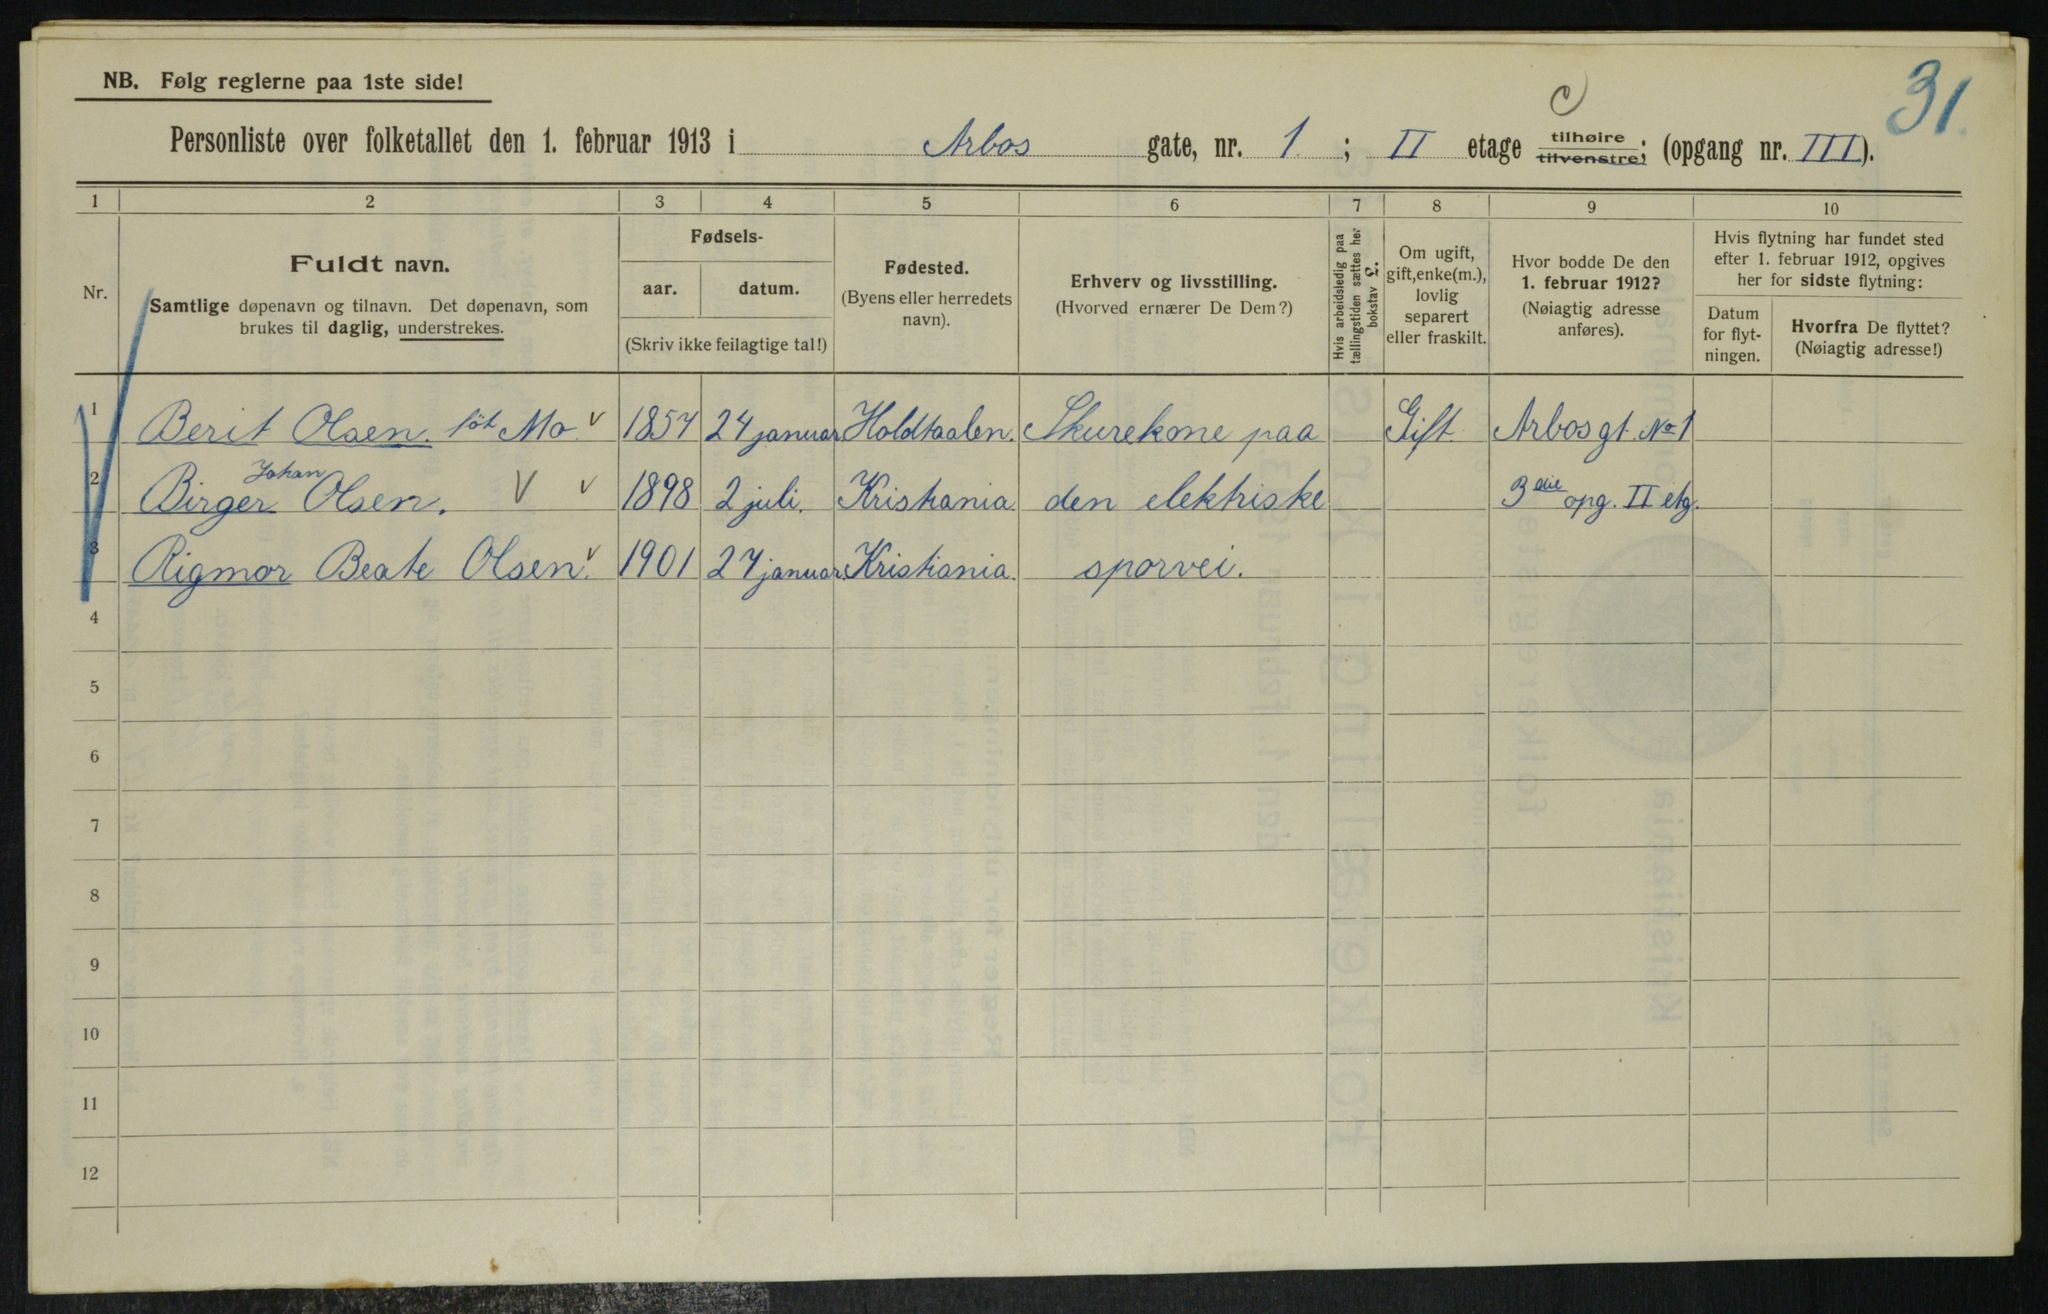 NB. Følg reglerne paa 1ste side!
31.
Personliste over folketallet den 1. februar 1913 i Arbos gate, nr. 1. ; II etage tilhøire tilvenstre; (opgang nr. III).
1 2 3 4 5 6 7 8 9 10
Nr.
Fuldt navn.
Samtlige døpenavn og tilnavn. Det døpenavn, som
brukes til daglig, understrekes.
Fødsels-
aar. datum.
(Skriv ikke feilagtige tal!)
Fødested.
(Byens eller herredets
navn).
Erhverv og livsstilling.
(Hvorved ernærer De Dem?)
Hvis arbeidsledig paa
tællingstiden sættes her
bokstav L.
Om ugift,
gift, enke(m.),
lovlig
separert
eller fraskilt.
Hvor bodde De den
1. februar 1912?
(Nøiagtig adresse
anføres).
Hvis flytning har fundet sted
efter 1. februar 1912, opgives
her for sidste flytning:
Datum
for flyt-
ningen.
Hvorfra De flyttet?
(Nøiagtig adresse!)
1 Berit Olsen. föt Mo v 1857 24 januar Holdtaalen. Skurekone paa Gift Arbosgt. No 1
Johan
2 Birger Olsen. V v 1898 2 juli. Kristiania. den elektriske 3die opg. II etg.
3 Rigmor Beate Olsen. v 1901 27 januar. Kristiania. sporvei.
4
5
6
7
8
9
10
11
12